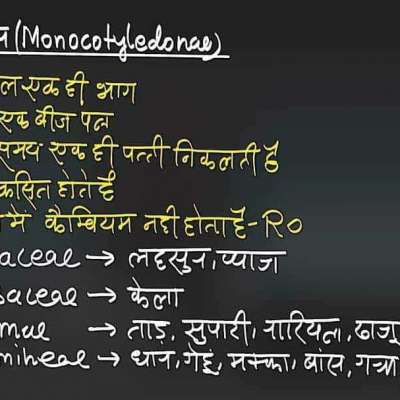 (Monocotyledonae)
ल एक ही भाग
एक बीज पत्र
समय एक ही पत्ती निकलती है
कसित होते है
मे कैम्बियम नही होता है - Ro
aceae → लहसुन, प्याज
aceae → केला
mae → ताड़, सुपारी, नारियल, खजू
mineae → धान, गेहूं, मक्का, बांस, गन्ना